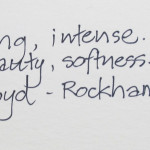 ng, intense.
auty, softness.
oyd - Rockham